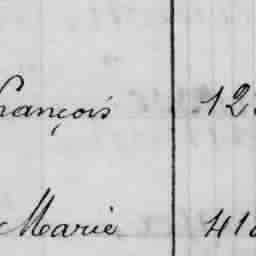 rançois 12
Marie 41